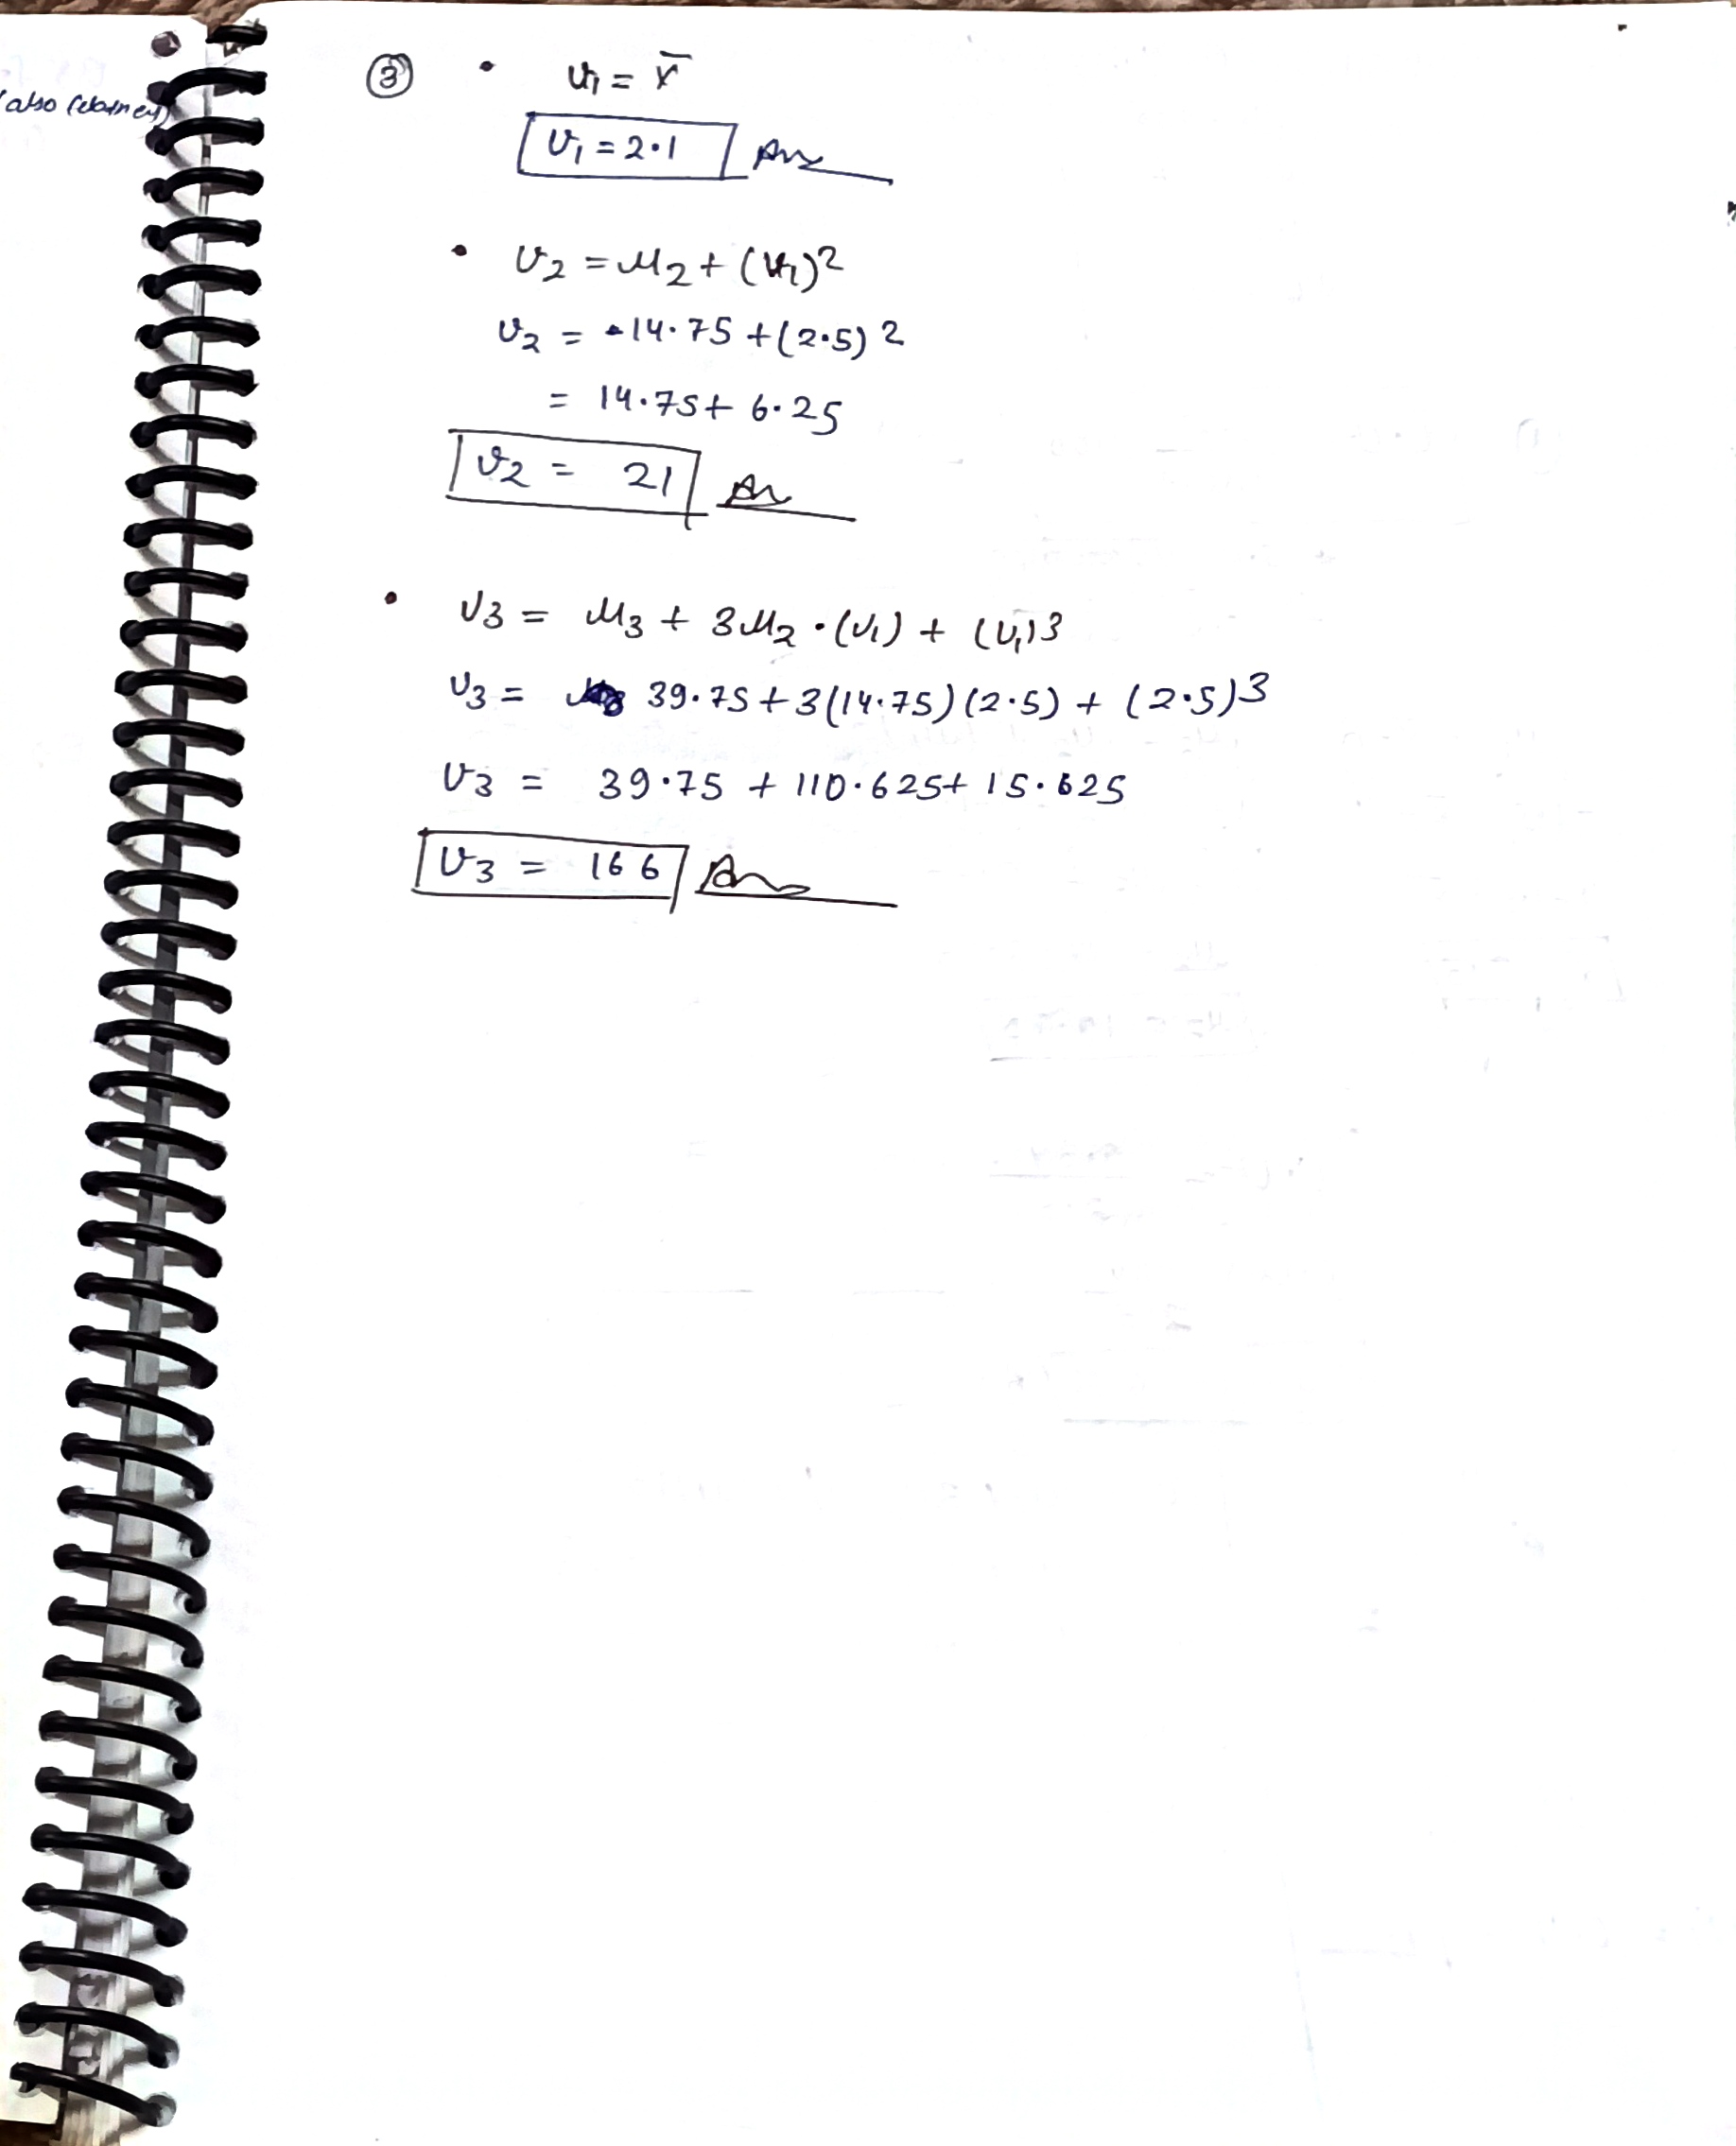 (also
③ • v₁ = x̄
v₁ = 2.1 Ans
• v₂ = μ₂ + (v₁)²
v₂ = 14.75 + (2.5)²
= 14.75 + 6.25
v₂ = 21 An
• v₃ = μ₃ + 3μ₂ · (v₁) + (v₁)³
v₃ = 39.75 + 3(14.75)(2.5) + (2.5)³
v₃ = 39.75 + 110.625 + 15.625
v₃ = 166 Ans